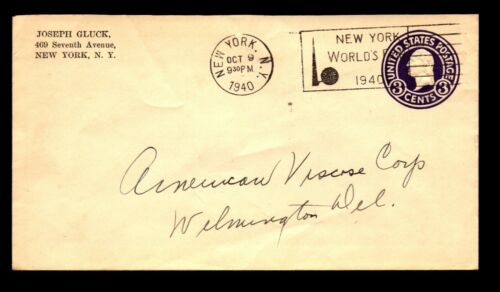 JOSEPH GLUCK,
469 Seventh Avenue,
NEW YORK, N. Y.
NEW YORK, N.Y.
OCT 9
930 PM
1940
NEW YORK
WORLD'S
1940
UNITED STATES POSTAGE
3 CENTS 3
American Viscose Corp
Wilmington Del.